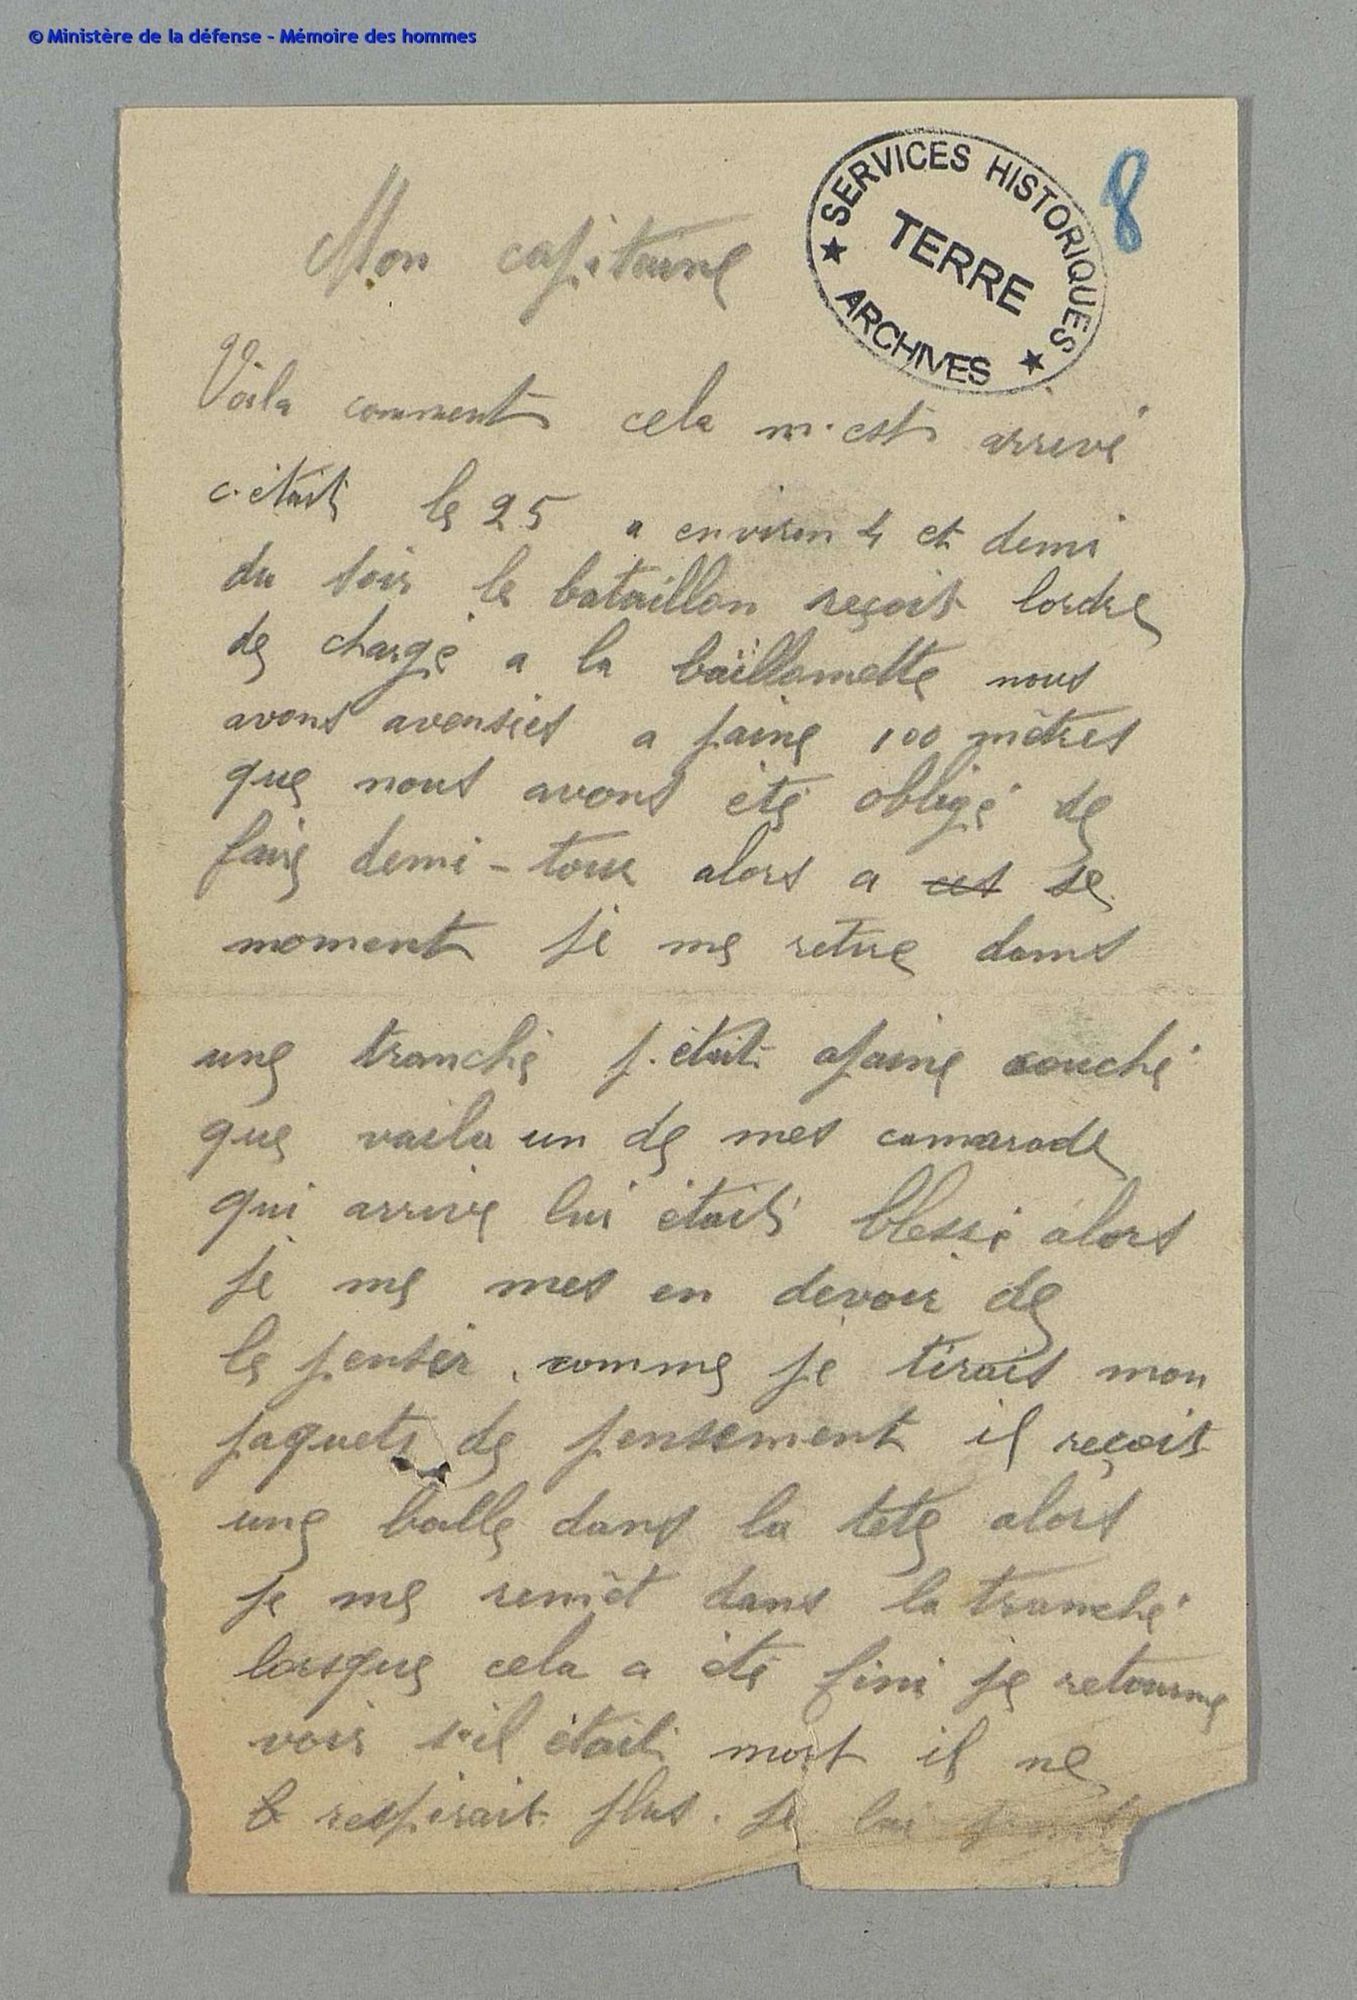 © Ministère de la défense - Mémoire des hommes
SERVICES HISTORIQUES
TERRE
ARCHIVES
8
Mon capitaine
Voila comment cela m'est arrivé
c'était le 25 a environ 4 et demi
du soir le bataillon reçoit lordre
de chargé a la baïllomette nous
avons avensiés a paine 100 mètres
que nous avons été obligé de
faire demi-tour alors a ces se
moment je me retire dans
une tranché j'était apaine couché
que voila un de mes camarade
qui arrive lui était blessé alors
je me mes en devoir de
le penser, comme je tirais mon
paquets de pensement il reçois
une balle dans la tete alors
je me remèt dans la tranché
lorsque cela a été fini je retourne
voir s'il était mort il ne
respirait plus. je lui